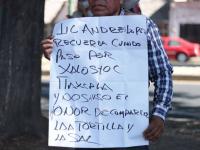 LIC ANDRES LOPEZ
RECUERDA CUANDO
PASO POR
XALOSTOC
TLAXCALA
Y DIOS
HONOR DE COMPARTIR
LA TORTILLA Y
LA SAL